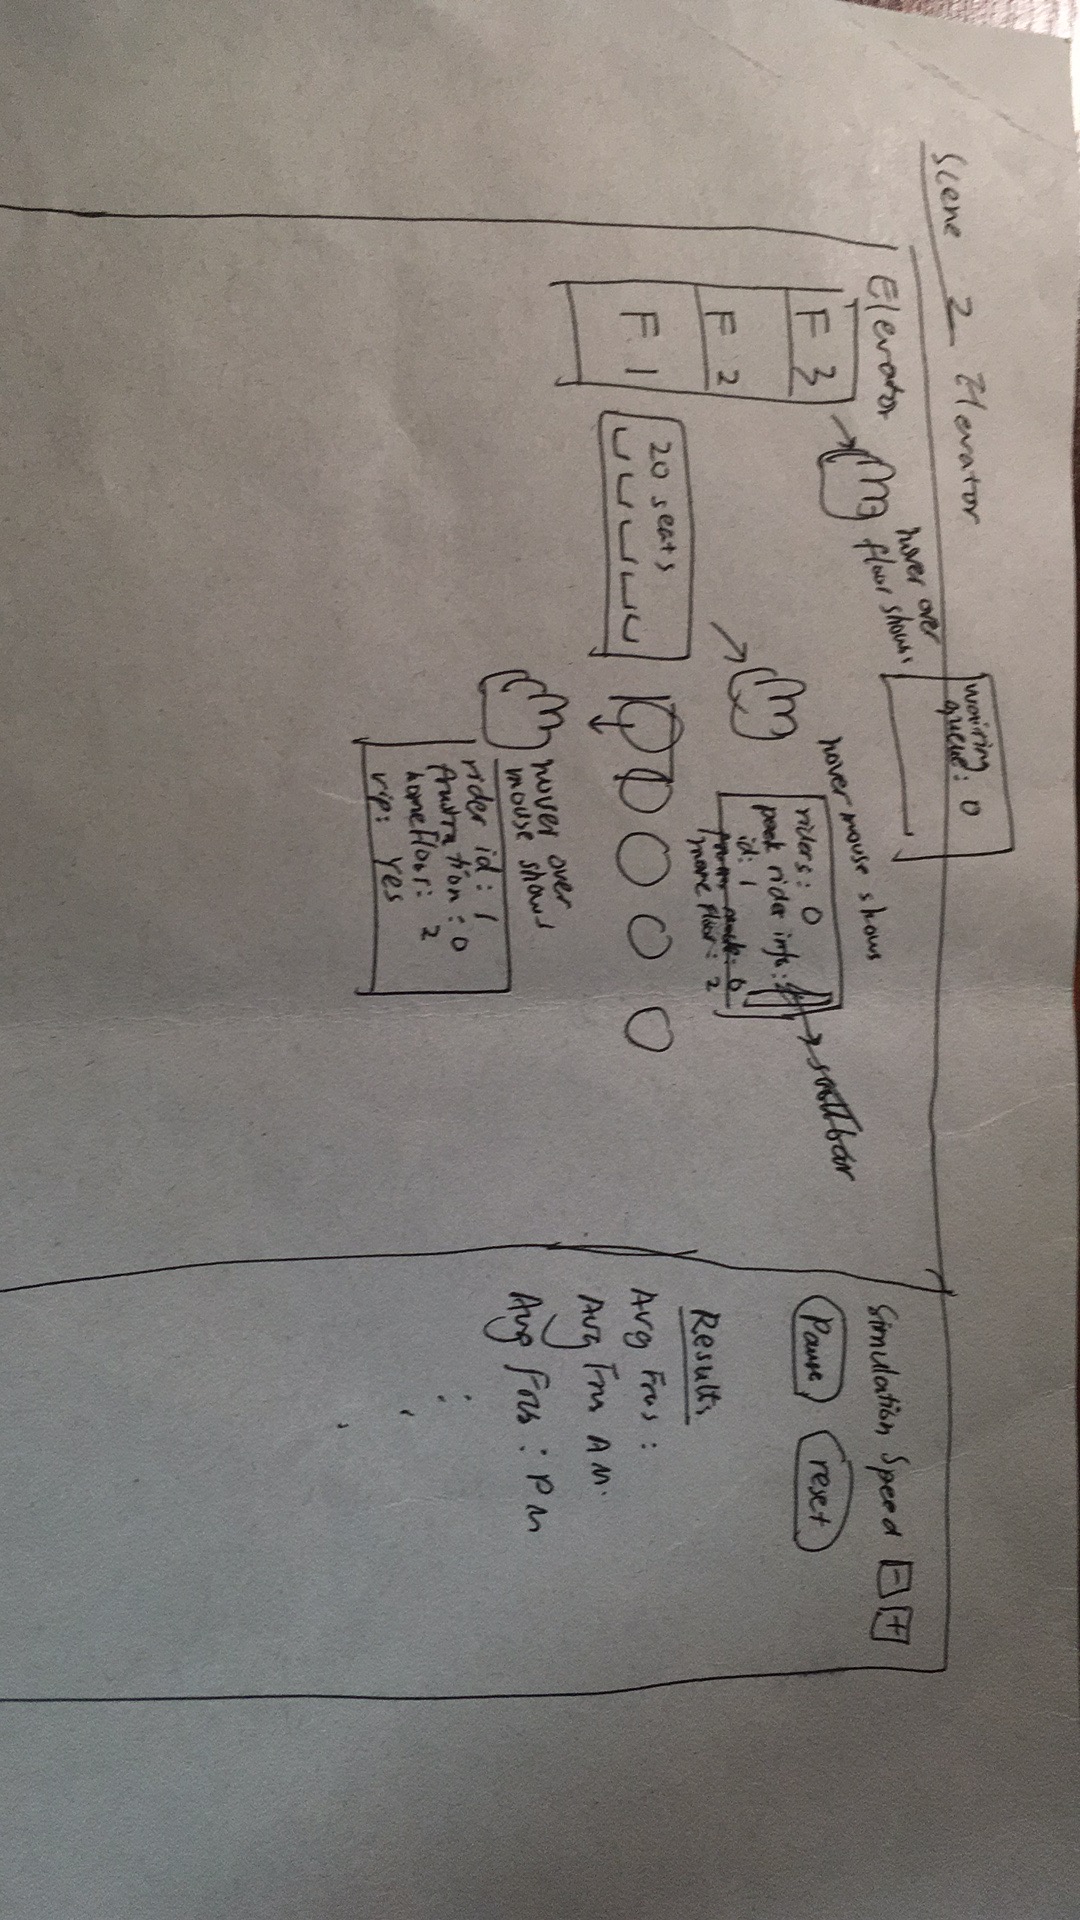 Scene 2 Elevator
waiting
queue: 0
Elevator
hover over
floor shows
F 3
F 2
F 1
20 seats
hover mouse shows
riders: 0
peek rider info:
id: 1
home floor: 2
scroll bar
hover over
mouse shows
rider id: 1
frustration: 0
homefloor: 2
vip: yes
Simulation Speed - +
Pause reset
Results
Avg Frus:
Avg Frus AM.
Avg Frus: PM